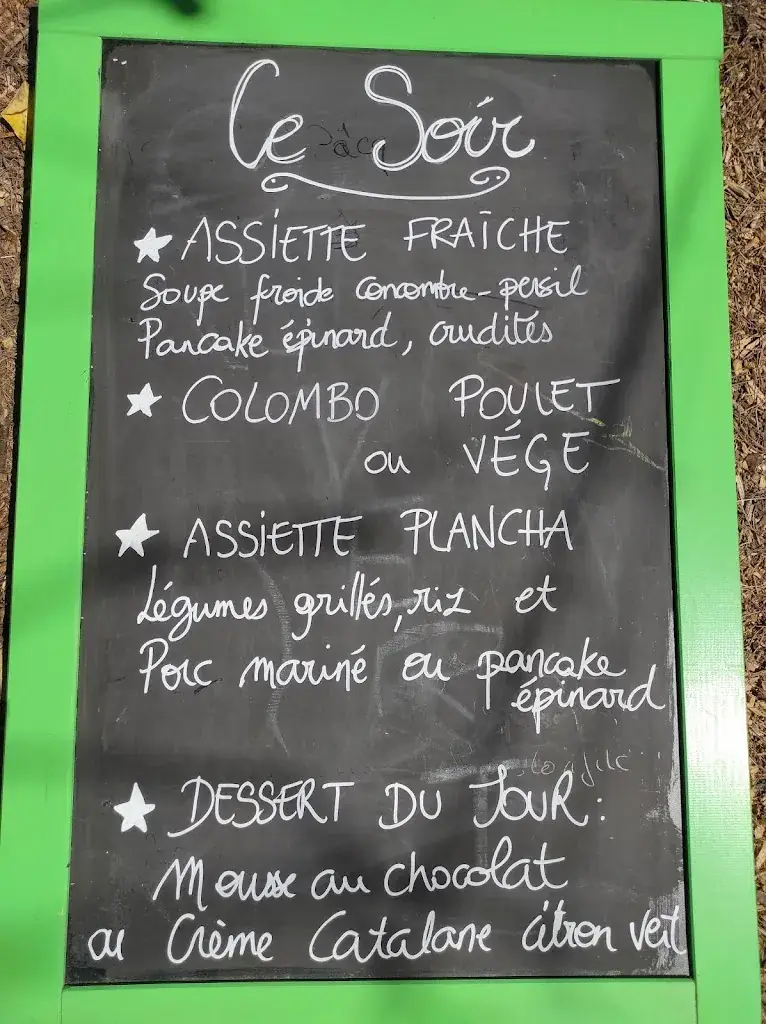 Ce Soir
★ ASSIETTE FRAÎCHE
Soupe froide concombre-persil
Pancake épinard, crudités
★ COLOMBO POULET
ou VÉGE
★ ASSIETTE PLANCHA
Légumes grillés, riz et
Porc mariné ou pancake
épinard
★ DESSERT DU JOUR :
Mousse au chocolat
ou Crème Catalane citron vert